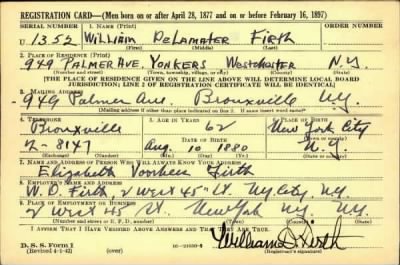 REGISTRATION CARD—(Men born on or after April 28, 1877 and on or before February 16, 1897)
SERIAL NUMBER 1. NAME (Print) ORDER NUMBER
U 1355 WILLIAM DELAMATER FIRTH
(First) (Middle) (Last)
2. PLACE OF RESIDENCE (Print)
949 PALMER AVE, YONKERS WESTCHESTER N.Y.
(Number and street) (Town, township, village, or city) (County) (State)
[THE PLACE OF RESIDENCE GIVEN ON THE LINE ABOVE WILL DETERMINE LOCAL BOARD
JURISDICTION; LINE 2 OF REGISTRATION CERTIFICATE WILL BE IDENTICAL]
3. MAILING ADDRESS
949 Palmer Ave. Bronxville N.Y.
[Mailing address if other than place indicated on line 2. If same insert word same]
4. TELEPHONE 5. AGE IN YEARS 6. PLACE OF BIRTH
Bronxville 62 New York City
DATE OF BIRTH
2-8147 Aug. 10 1880 N.Y.
(Exchange) (Number) (Mo.) (Day) (Yr.) (State or country)
7. NAME AND ADDRESS OF PERSON WHO WILL ALWAYS KNOW YOUR ADDRESS
Elizabeth Voorhees Firth
8. EMPLOYER'S NAME AND ADDRESS
W. D. Firth, 2 West 45" St. N.Y. City, N.Y.
9. PLACE OF EMPLOYMENT OR BUSINESS
2 West 45 St. New York N.Y. N.Y.
(Number and street or R. F. D. number) (Town) (County) (State)
I AFFIRM THAT I HAVE VERIFIED ABOVE ANSWERS AND THAT THEY ARE TRUE.
D. S. S. Form 1
(Revised 4-1-42) (over)
William D. Firth
(Registrant's signature)